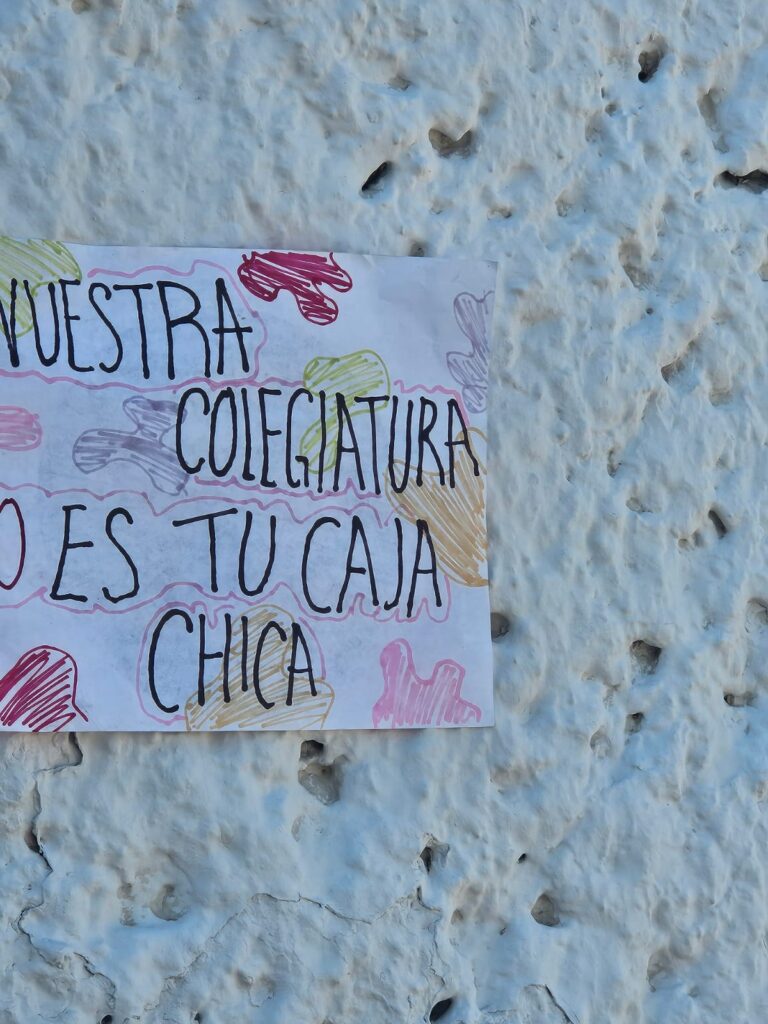 NUESTRA
COLEGIATURA
O ES TU CAJA
CHICA